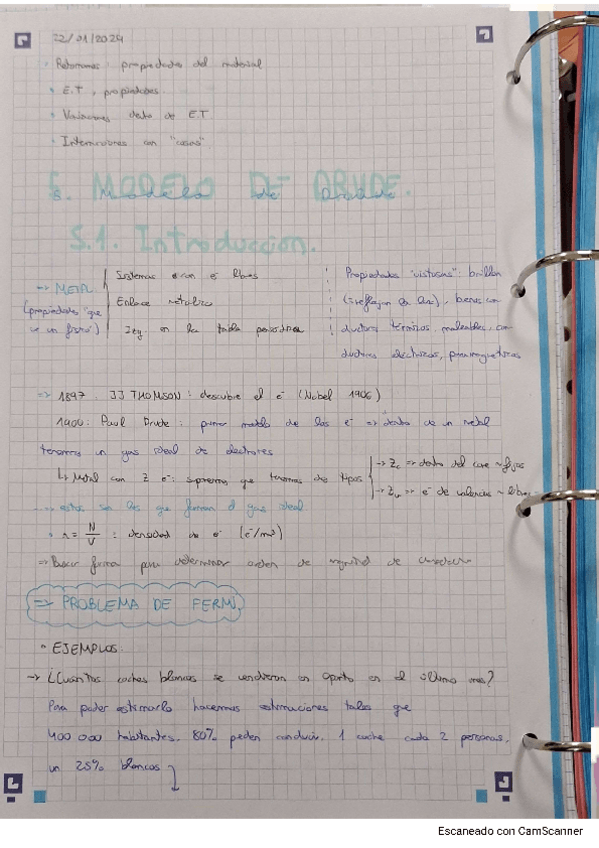 22/01/2024
· Retomamos: propiedades del material
· E.T, propiedades.
· Variaciones dentro de E.T
· Interacciones con "cosas".
5. MODELO DE DRUDE.
5.1. Introducción.
Sistemas con e⁻ libres
→ METAL
(propiedades "que
ve un físico")
Enlace metálico
en la tabla periódica
Propiedades "vistosas": brillan
(reflejan la luz), buenos con
ductores térmicos, maleables, con
ductores eléctricos, paramagnéticos
⇒ 1897. JJ THOMSON: descubre el e⁻ (Nobel 1906)
1900: Paul Drude: primer modelo de los e⁻ ⇒ dentro de un metal
tenemos un gas ideal de electrones
↳ Metal con Z e⁻: supremos que tenemos dos tipos
→ Zc ⇒ dentro del core ~ fijos
→ Zv ⇒ e⁻ de valencia ~ libres
⇒ estos son los que forman el gas ideal
· n = N/V : densidad de e⁻ (e⁻/m³)
⇒ Buscar forma para determinar orden de magnitud de
⇒ PROBLEMA DE FERMI
· EJEMPLOS:
→ ¿Cuantos coches blancos se vendieron en Oporto en el último mes?
Para poder estimarlo hacemos estimaciones tales que
400 000 habitantes, 80% pueden conducir, 1 coche cada 2 personas,
un 25% blancos
Escaneado con CamScanner